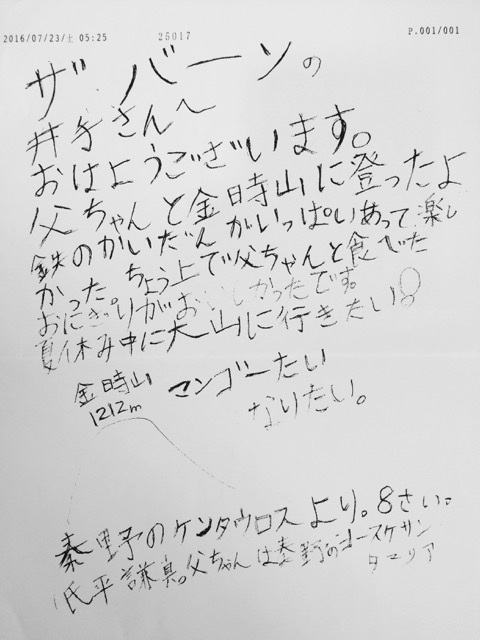 2016/07/23/土 05:25 26017 P.001/001
ザ バーンの
井手さんへ
おはようございます。
父ちゃんと金時山に登ったよ
鉄のかいだんがいっぱいあって楽し
かった。ちょう上で父ちゃんと食べた
おにぎりがおいしかったです。
夏休み中に大山に行きたい
金時山 マンゴーたい
1212m なりたい。
秦野のケンタウロスより。8さい
父ちゃんは秦野の